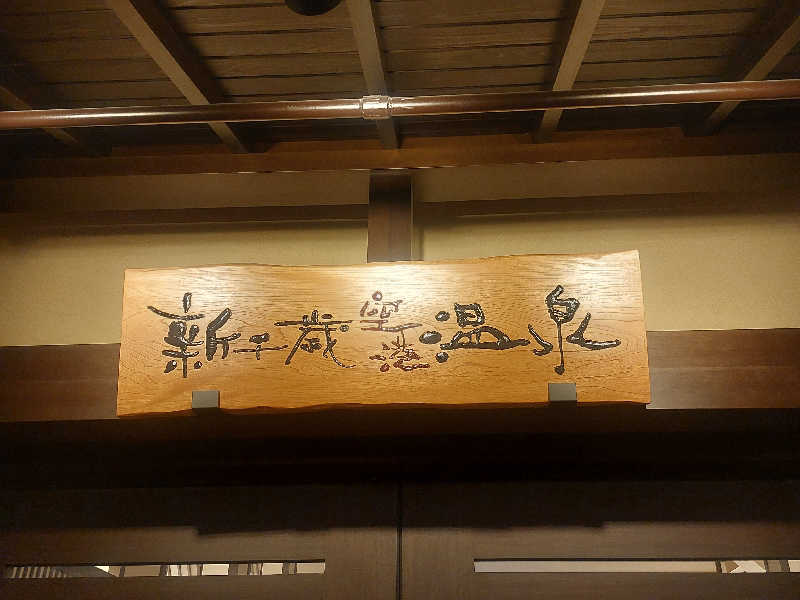 新千歳空港温泉